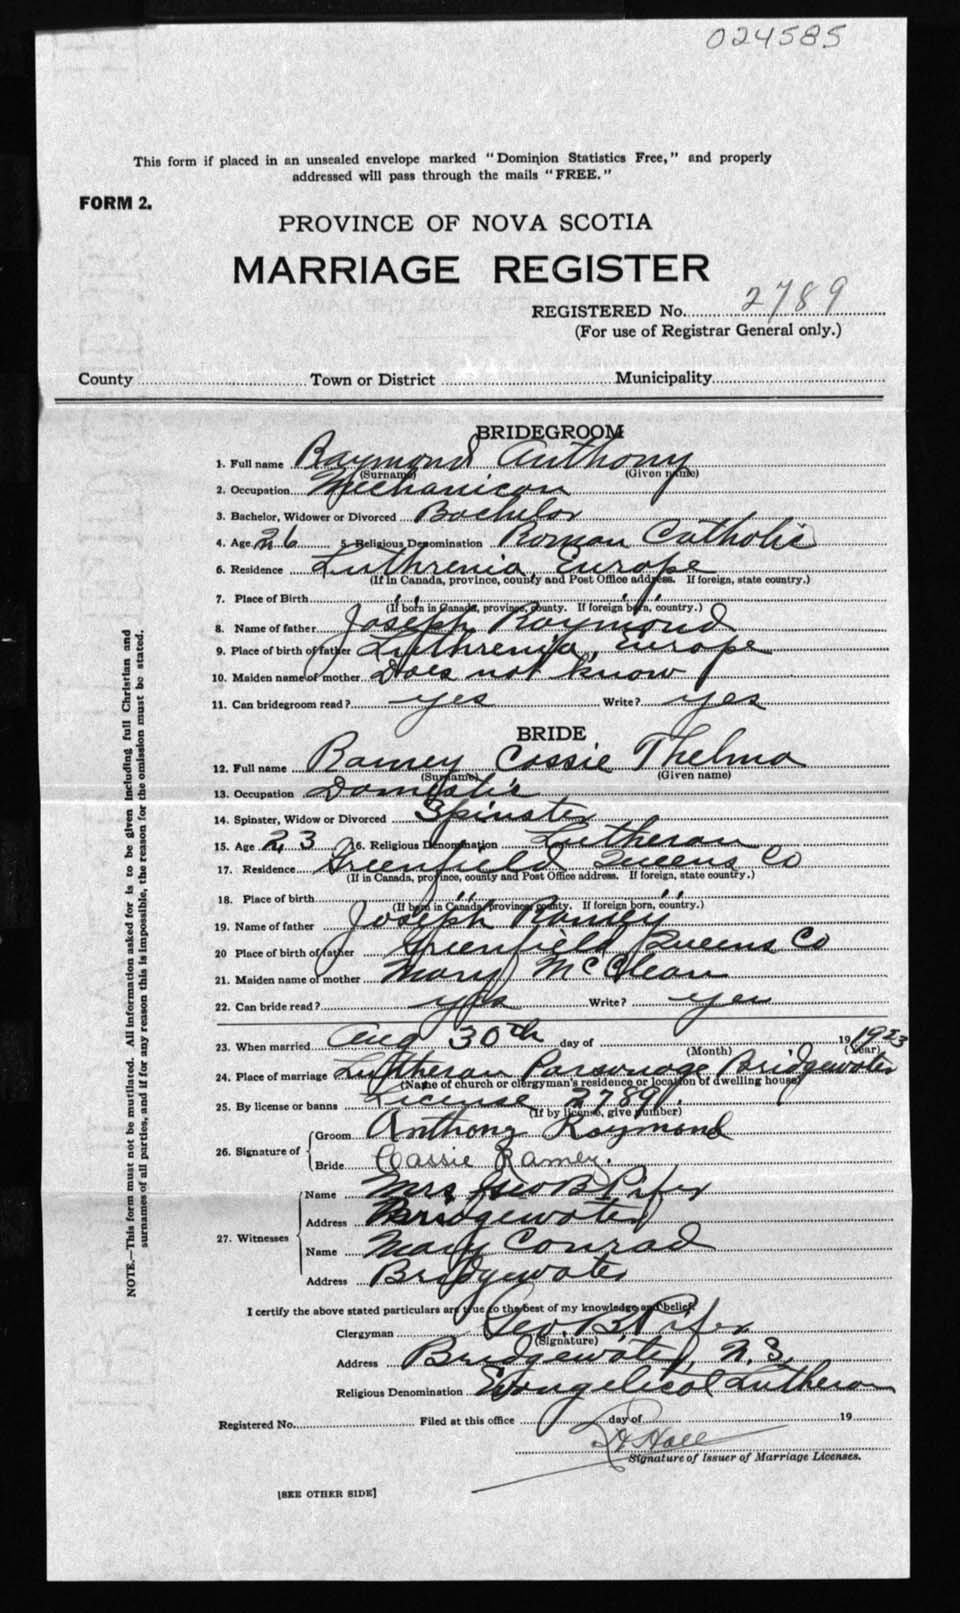 024585
This form if placed in an unsealed envelope marked "Dominion Statistics Free," and properly
addressed will pass through the mails "FREE."
FORM 2.
PROVINCE OF NOVA SCOTIA
MARRIAGE REGISTER
REGISTERED No. 2789
(For use of Registrar General only.)
County Town or District Municipality
BRIDEGROOM
1. Full name Raymond Anthony
(Surname) (Given name)
2. Occupation Mechanican
3. Bachelor, Widower or Divorced Bachelor
4. Age 26 5. Religious Denomination Roman Catholic
6. Residence Luthrenia, Europe
(If in Canada, province, county and Post Office address. If foreign, state country.)
7. Place of Birth " " "
(If born in Canada, province, county. If foreign born, country.)
8. Name of father Joseph Raymond
9. Place of birth of father Luthrenia, Europe
10. Maiden name of mother Does not know
11. Can bridegroom read? yes Write? yes
BRIDE
12. Full name Ramey Cassie Thelma
(Surname) (Given name)
13. Occupation Domestic
14. Spinster, Widow or Divorced Spinster
15. Age 23 16. Religious Denomination Lutheran
17. Residence Greenfield Queens Co
(If in Canada, province, county and Post Office address. If foreign, state country.)
18. Place of birth " " "
(If born in Canada province, county. If foreign born, country.)
19. Name of father Joseph Ramey
20 Place of birth of father Greenfield Queens Co
21. Maiden name of mother Mary McClean
22. Can bride read? yes Write? yes
23. When married Aug 30th day of 19 1923
(Month) (Year)
24. Place of marriage Lutheran Parsonage Bridgewater
(Name of church or clergyman's residence or location of dwelling house)
25. By license or banns License 2789.
(If by license, give number)
26. Signature of Groom Anthony Raymond
Bride Cassie Ramey.
27. Witnesses Name Mrs Geo B Pifer
Address Bridgewater
Name Mary Conrad
Address Bridgewater
I certify the above stated particulars are true to the best of my knowledge and belief.
Clergyman Geo. B. Pifer
(Signature)
Address Bridgewater, N.S.
Religious Denomination Evangelical Lutheran
Registered No. Filed at this office day of 19
Hall
Signature of Issuer of Marriage Licenses.
[SEE OTHER SIDE]
NOTE.—This form must not be mutilated. All information asked for is to be given including full Christian and
surnames of all parties, and if for any reason this is impossible, the reason for the omission must be stated.